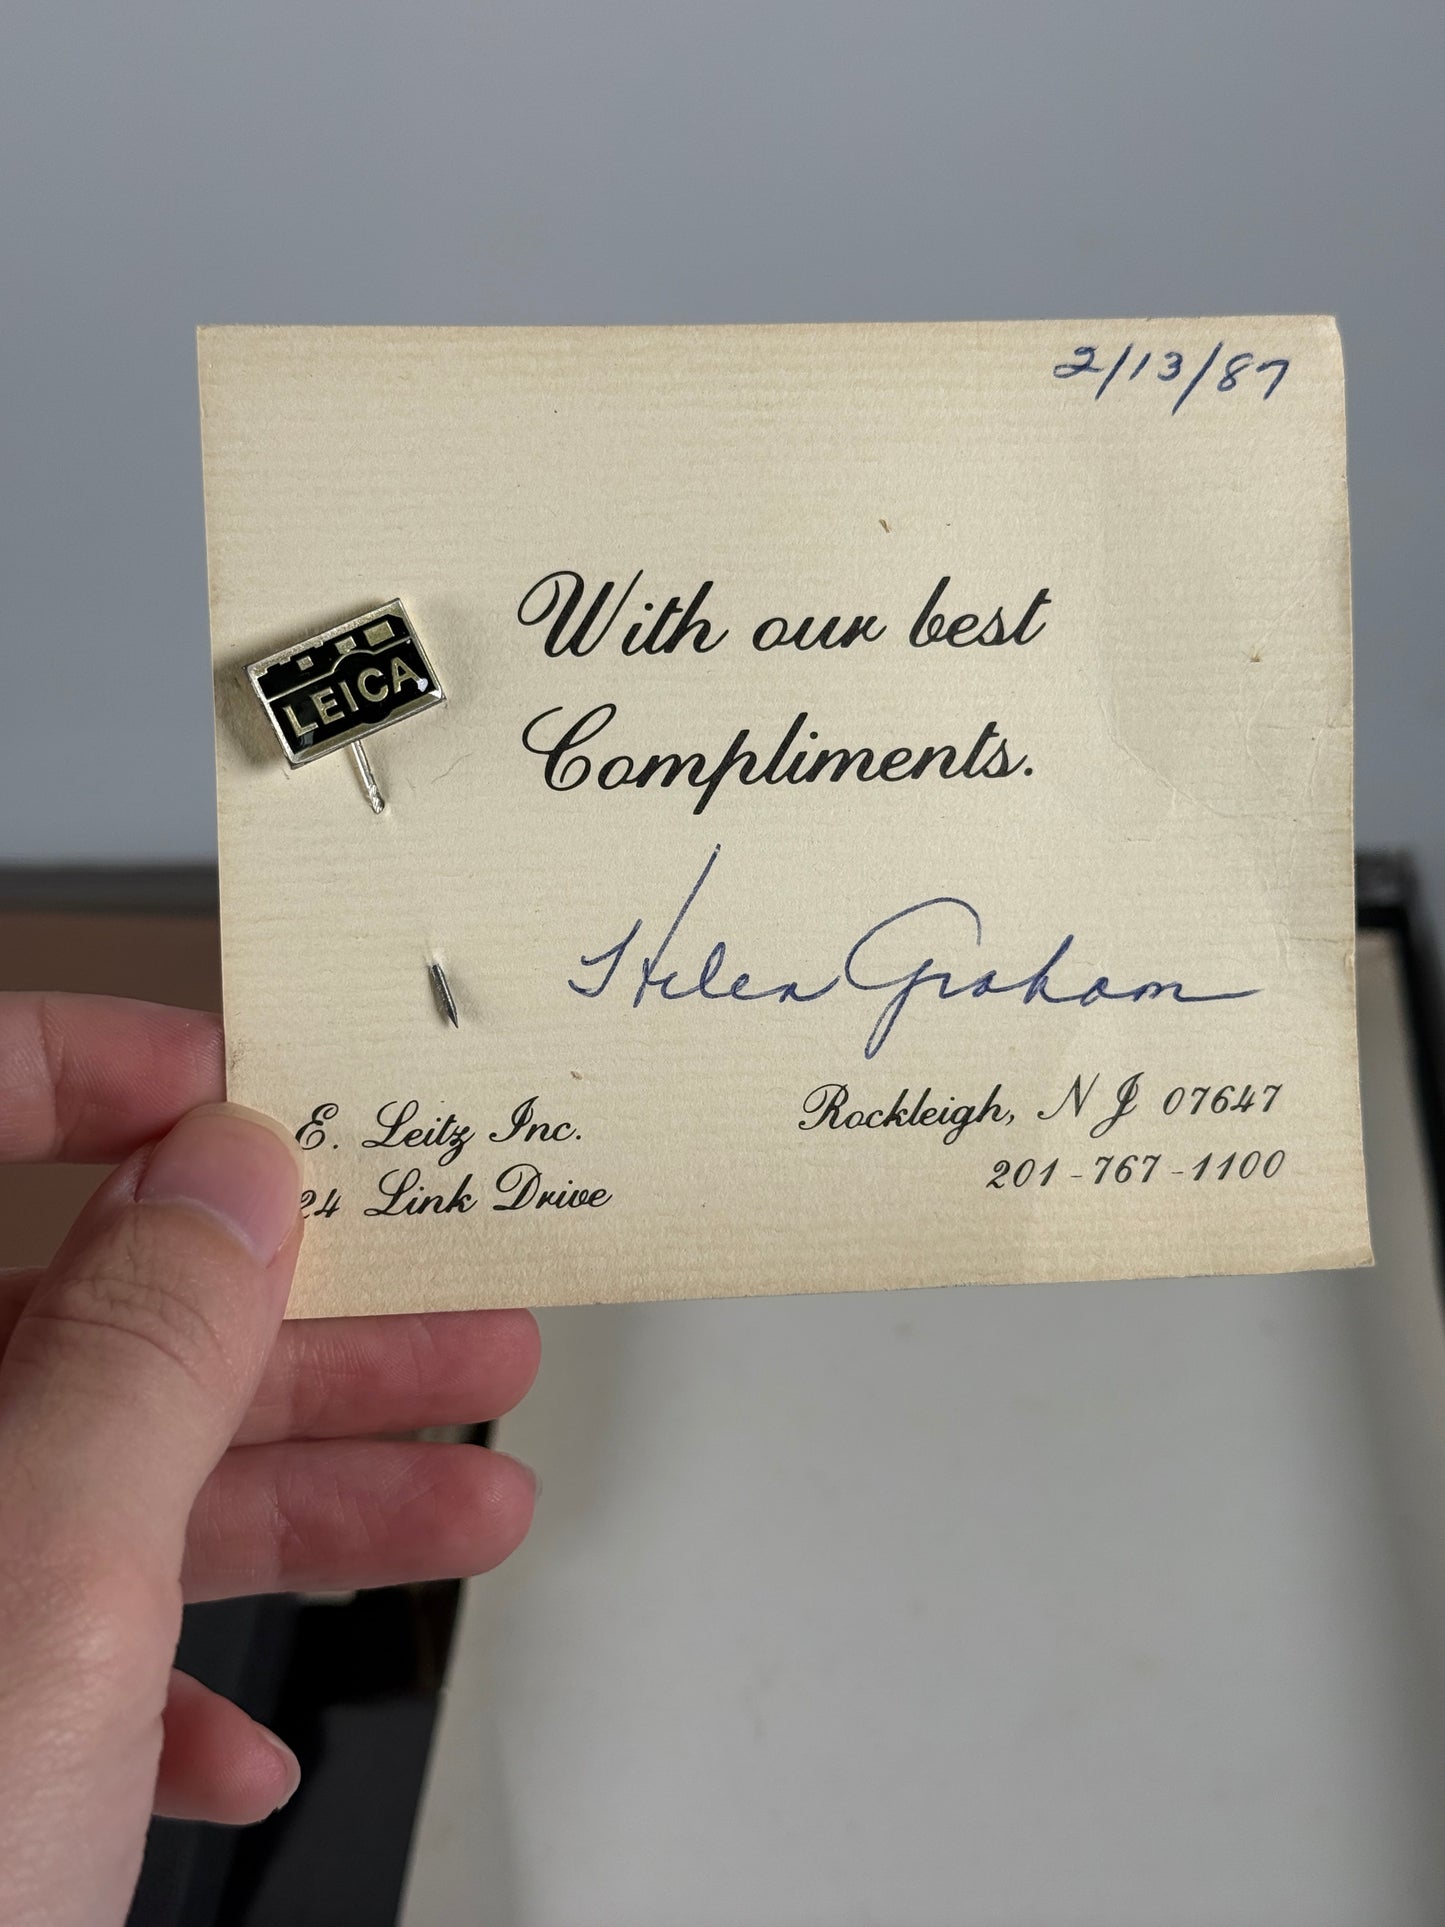 2/13/87
LEICA
With our best
Compliments.
Helen Graham
E. Leitz Inc.
24 Link Drive
Rockleigh, NJ 07647
201-767-1100